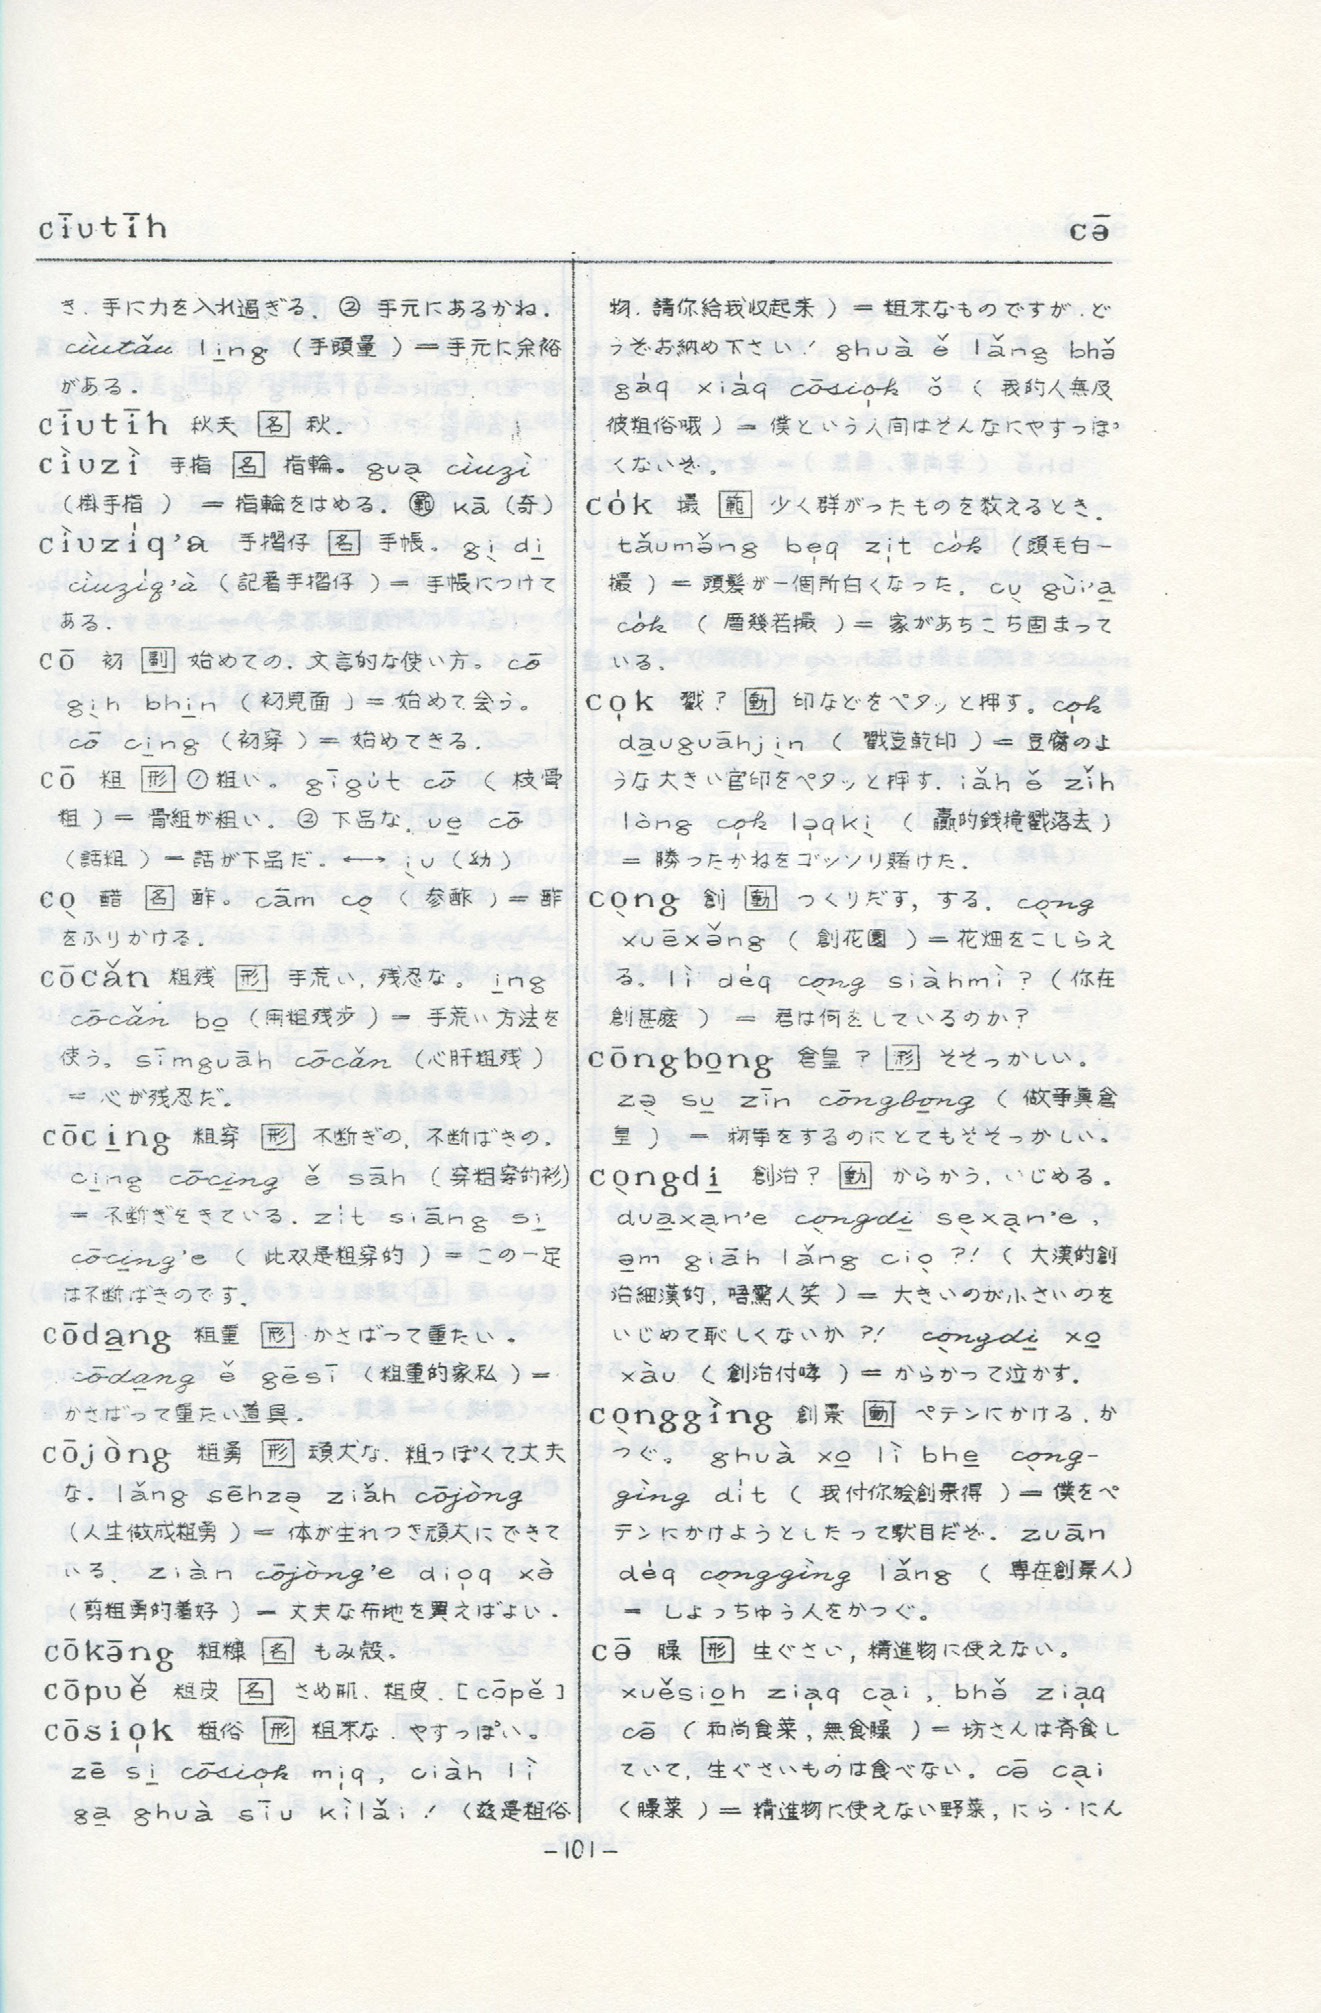 cīutīh
cə̄
き、手に力を入れ過ぎる。 ② 手元にあるかね。
cìutǎu li̱ng (手頭量) ＝手元に余裕
がある。
cīutīh 秋天 [名] 秋。
cìuzì 手指 [名] 指輪。 gua̩ cìuzì
(掛手指) ＝ 指輪をはめる。 ㊙範 kā (奇)
cìuzi̍q'a 手摺仔 [名] 手帳。 gi̩ di̱
cìuzi̍q'à (記着手摺仔) ＝ 手帳につけて
ある。
cō 初 [副] 始めての、文言的な使い方。 cō
gi̩h bhi̱n (初見面) ＝ 始めて会う。
cō ci̱ng (初穿) ＝ 始めてきる。
cō 粗 [形] ① 粗い。 gīgu̍t cō (枝骨
粗) ＝ 骨組が粗い。 ② 下品な。 ue̱ cō
(話粗) ＝ 話が下品だ。 ←→ i̩u (幼)
co̩ 醋 [名] 酢。 cām co̩ (参酢) ＝ 酢
をふりかける。
cōcǎn 粗残 [形] 手荒い, 残忍な。 i̱ng
cōcǎn bo̱ (用粗残歩) ＝ 手荒い方法を
使う。 sīmguāh cōcǎn (心肝粗残)
＝ 心が残忍だ。
cōci̱ng 粗穿 [形] 不断ぎの, 不断ばきの。
ci̱ng cōci̱ng ě sāh (穿粗穿的衫)
＝ 不断ぎをきている。 zi̍t siāng si̱
cōci̱ng'e (此双是粗穿的) ＝ この一足
は不断ばきのです。
cōda̱ng 粗重 [形] かさばって重たい。
cōda̱ng ě gēsī (粗重的家私) ＝
かさばって重たい道具。
cōjòng 粗勇 [形] 頑丈な、粗っぽくて丈夫
な。 lǎng sēhzə̱ ziǎh cōjòng
(人生做成粗勇) ＝ 体が生れつき頑丈にできて
いる。 ziàn cōjòng'e dio̩q xə̀
(剪粗勇的着好) ＝ 丈夫な布地を買えばよい。
cōkə̄ng 粗糠 [名] もみ殻。
cōpuě 粗皮 [名] さめ肌、粗皮。 [cōpě]
cōsio̩k 粗俗 [形] 粗末な、やすっぽい。
zē si̱ cōsio̩k mi̩q, ciàh lì
ga̱ ghuà sīu kìlǎi! (玆是粗俗
物、請你給我収起来) ＝ 粗末なものですが、ど
うぞお納め下さい! ghuà ě lǎng bhə̌
ga̍q xia̍q cōsio̩k ǒ (我的人無及
彼粗俗哦) ＝ 僕という人間はそんなにやすっぽ
くないぞ。
co̍k 撮 [範] 少く群がったものを数えるとき。
tǎumə̌ng be̩q zi̍t co̍k (頭毛白一
撮) ＝ 頭髪が一個所白くなった。 cu̩ gùi'a
co̍k (厝幾若撮) ＝ 家があちこち固まって
いる。
co̩k 戳? [動] 印などをペタッと押す。 co̩k
da̱uguāhji̩n (戳豆乾印) ＝ 豆腐のよ
うな大きい官印をペタッと押す。 iǎh ě zǐh
lòng co̩k lə̩qki̩ (贏的銭攏戳落去)
＝ 勝ったかねをゴッソリ賭けた。
co̩ng 創 [動] つくりだす, する。 co̩ng
xuēxə̌ng (創花園) ＝ 花畑をこしらえ
る。 lì de̍q co̩ng siàhmì? (你在
創甚麼) ＝ 君は何をしているのか?
cōngbo̱ng 倉皇? [形] そそっかしい。
zə̩ su̱ zīn cōngbo̱ng (做事真倉
皇) ＝ 物事をするのにとてもそそっかしい。
co̩ngdi̱ 創治? [動] からかう, いじめる。
dua̱xa̩n'e co̩ngdi̱ se̩xa̩n'e,
ə̱m giāh lǎng cio̩?! (大漢的創
治細漢的, 唔驚人笑) ＝ 大きいのが小さいのを
いじめて恥しくないか?! co̩ngdi̱ xo̱
xàu (創治付哮) ＝ からかって泣かす。
co̩nggìng 創景 [動] ペテンにかける, か
つぐ。 ghuà xo̱ lì bhe̱ co̩ng-
gìng di̍t (我付你𣍐創景得) ＝ 僕をペ
テンにかけようとしたって駄目だぞ。 zuān
de̍q co̩nggìng lǎng (専在創景人)
＝ しょっちゅう人をかつぐ。
cə̄ 臊 [形] 生ぐさい, 精進物に使えない。
xuěsio̱h zia̩q ca̩i, bhə̌ zia̩q
cə̄ (和尚食菜, 無食臊) ＝ 坊さんは斉食し
ていて, 生ぐさいものは食べない。 cə̄ ca̩i
(臊菜) ＝ 精進物に使えない野菜, にら・にん
－101－